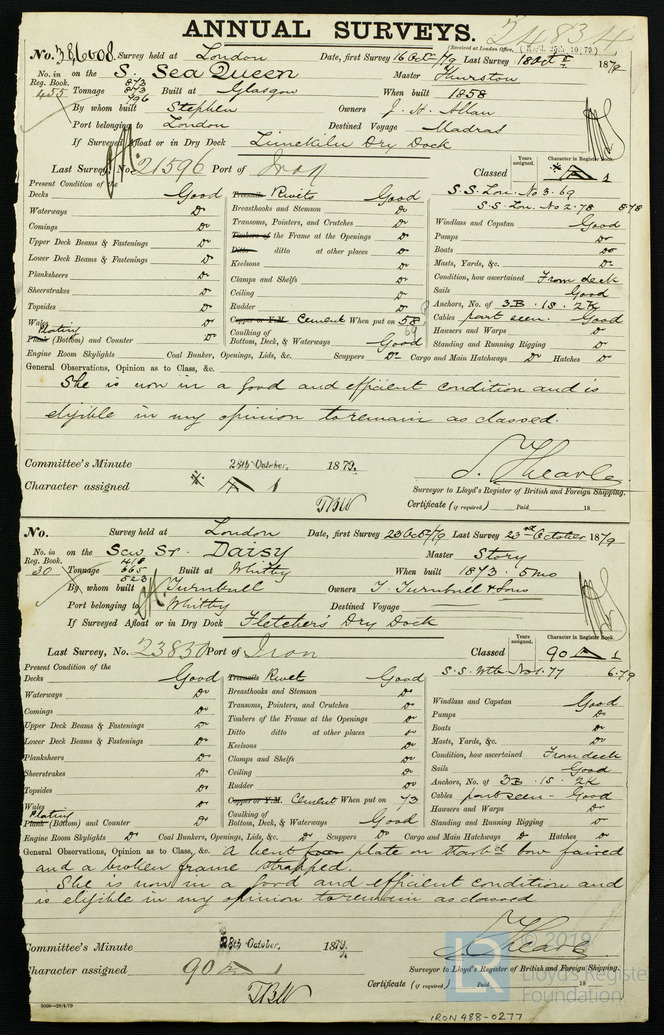 ANNUAL SURVEYS. 24834
(Received at London Office,
No. Survey held at London Date, first Survey 16 Oct /79 Last Survey 18 Oct 1879
No. in Reg. Book. 455 on the S. Sea Queen Master Thurston
Tonnage 873 873 796 Built at Glasgow When built 1858
By whom built Stephen Owners J. H. Allan
Port belonging to London Destined Voyage Madras
If Surveyed Afloat or in Dry Dock Limekiln Dry Dock
Last Survey, No. 21596 Port of Iron Classed A 1
Years assigned. Character in Register Book.
S.S. Lon. No 3. 69
S.S. Lon. No 2. 78 8.78
Present Condition of the
Decks Good
Waterways Do
Comings Do
Upper Deck Beams & Fastenings Do
Lower Deck Beams & Fastenings Do
Planksheers Do
Sheerstrakes Do
Topsides Do
Wales
Plating
Plank (Bottom) and Counter Do
Treenails Rivets Good
Breasthooks and Stemson Do
Transoms, Pointers, and Crutches Do
Timbers of the Frame at the Openings Do
Ditto ditto at other places Do
Keelsons Do
Clamps and Shelfs Do
Ceiling Do
Rudder Do
Copper or Y.M. Cement When put on 58
69
Caulking of
Bottom, Deck, & Waterways Good
Windlass and Capstan Good
Pumps Do
Boats Do
Masts, Yards, &c. Do
Condition, how ascertained From deck
Sails Good
Anchors, No. of 3B. 1S. 2K
Cables part seen. Good
Hawsers and Warps Do
Standing and Running Rigging Do
Engine Room Skylights Coal Bunker, Openings, Lids, &c. Scuppers Do Cargo and Main Hatchways Do Hatches Do
General Observations, Opinion as to Class, &c.
She is now in a good and efficient condition and is
eligible in my opinion to remain as classed.
Committee's Minute 28th October, 1879.
Character assigned A 1
TBW
Surveyor to Lloyd's Register of British and Foreign Shipping.
Certificate (if required) Paid 18
No. Survey held at London Date, first Survey 23 Oct /79 Last Survey 23rd October 1879
No. in Reg. Book. 30 on the Scw Sr. Daisy Master Story
Tonnage 665 523 Built at Whitby When built 1873. 5mo
By whom built Turnbull Owners T. Turnbull & Sons
Port belonging to Whitby Destined Voyage
If Surveyed Afloat or in Dry Dock Fletcher's Dry Dock
Last Survey, No. 23830 Port of Iron Classed 90 A 1
Years assigned. Character in Register Book.
S.S. Wtb No 1. 77 6.79
Present Condition of the
Decks Good
Waterways Do
Comings Do
Upper Deck Beams & Fastenings Do
Lower Deck Beams & Fastenings Do
Planksheers Do
Sheerstrakes Do
Topsides Do
Wales
Plating
Plank (Bottom) and Counter Do
Treenails Rivet Good
Breasthooks and Stemson Do
Transoms, Pointers, and Crutches Do
Timbers of the Frame at the Openings Do
Ditto ditto at other places Do
Keelsons Do
Clamps and Shelfs Do
Ceiling Do
Rudder Do
Copper or Y.M. Cement When put on 73
Caulking of
Bottom, Deck, & Waterways Good
Windlass and Capstan Good
Pumps Do
Boats Do
Masts, Yards, &c. Do
Condition, how ascertained From deck
Sails Good
Anchors, No. of 3B. 1S. 2K
Cables part seen - Good
Hawsers and Warps Do
Standing and Running Rigging Do
Engine Room Skylights Do Coal Bunkers, Openings, Lids, &c. Do Scuppers Do Cargo and Main Hatchways Do Hatches Do
General Observations, Opinion as to Class, &c. A bent plate on starbd bow faired
and a broken frame strapped.
She is now in a good and efficient condition and
is eligible in my opinion to remain as classed
Committee's Minute 28th October, 1879.
Character assigned 90 A 1
TBW
Surveyor to Lloyd's Register of British and Foreign Shipping.
Certificate (if required) Paid 18
© 2019
LR Lloyd's Register
Foundation
IRON 488-0277